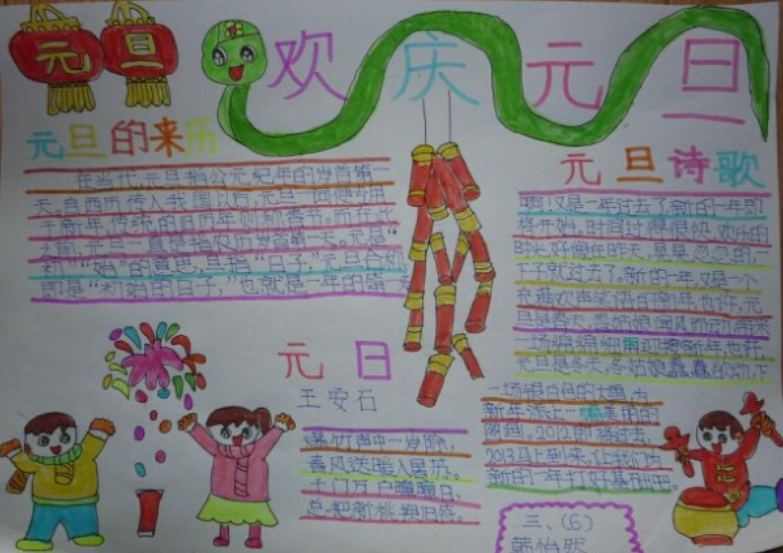 元旦
欢庆元旦
元旦的来历
在当代,元旦指公元纪年的岁首第一
天。自西历传入我国以后,元旦一词便专用
于新年,传统的旧历年则称春节。而在此
之间,元旦一直是指农历岁首第一天。元是“
初”“始”的意思,旦指“日子”,元旦合称
即是“初始的日子”,也就是一年的第一
元旦诗歌
啊!又是一年过去了新的一年即
将开始。时间过得很快,欢乐的
时光好像在昨天,晃晃忽忽的,一
下子就过去了。新的一年,又是一个
充满欢声笑语的新年,也许,元
旦是春天,春姑娘
一场绵绵细雨迎接新年,也许,
元旦是冬天,冬姑娘蠢蠢欲动,下
一场银白色的大雪,为
新年添上一幅美丽的
图画。2012即将过去,
2013马上到来,让我们为
新的一年打好基础吧。
元日
王安石
爆竹声中一岁除,
春风送暖入屠苏。
千门万户曈曈日,
总把新桃换旧符。
三、(6)
韩怡然